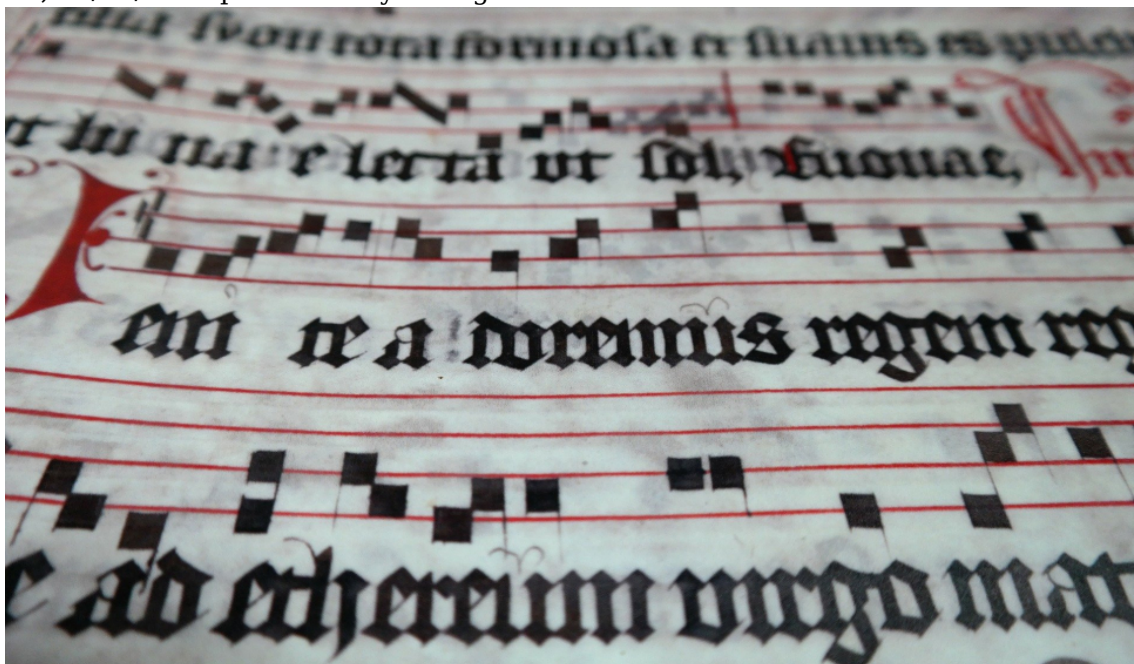 tota formosa et suauis es pulch
ut lu na e lecta ut sol, Euouae,
Veni te a doremus regem reg
e ad ethereum virgo mat